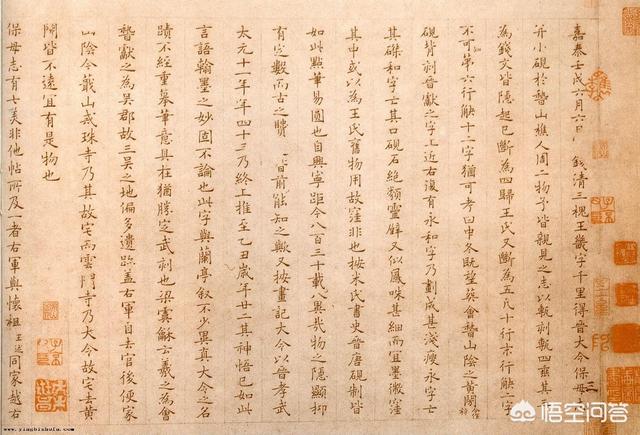 嘉泰壬戌六月六日錢清三槐王畿字千里得晉大令保母
并小硯於稽山樵人周二物予皆親見之志以甎刻甎四垂其三
為錢文皆隱起已斷為四歸王氏又斷為五凡十行末行缺二字
不可知第六行缺十一字猶可考曰申冬既望葬會稽山陰之黃閍
硯背刻晉獻之字上近右復有永和字乃劃成甚淺瘦永字亡
其磔和字亡其口硯石絕類靈壁又似鳳味甚細而宜墨微窪
其中或以為王氏舊物用故窪非也按米氏書史晉唐硯制皆
如此點筆易圓也自興寧距今八百三十載八與幾物之隱顯抑
有定數而古之賢前能知之歟又按畫記大令以晉孝武
太元十一年年四十三乃終上推至乙丑歲年廿二其神悟已如此
言語翰墨之妙固不論也此字與蘭亭敘不少異真大令之名
蹟不經重摹筆意具在猶勝定武刻也梁雲穌云羲之為會
稽獻之為吳郡故三吳之地偏多遺跡蓋右軍自去官後便家
山陰今蕺山戒珠寺乃其故宅而雲門寺乃大令故宅去黃
閍皆不遠宜有是物也
保母志有七美非他帖所及一者右軍與懷祖王述同家越右
www.yingbishufa.com
悟空问答